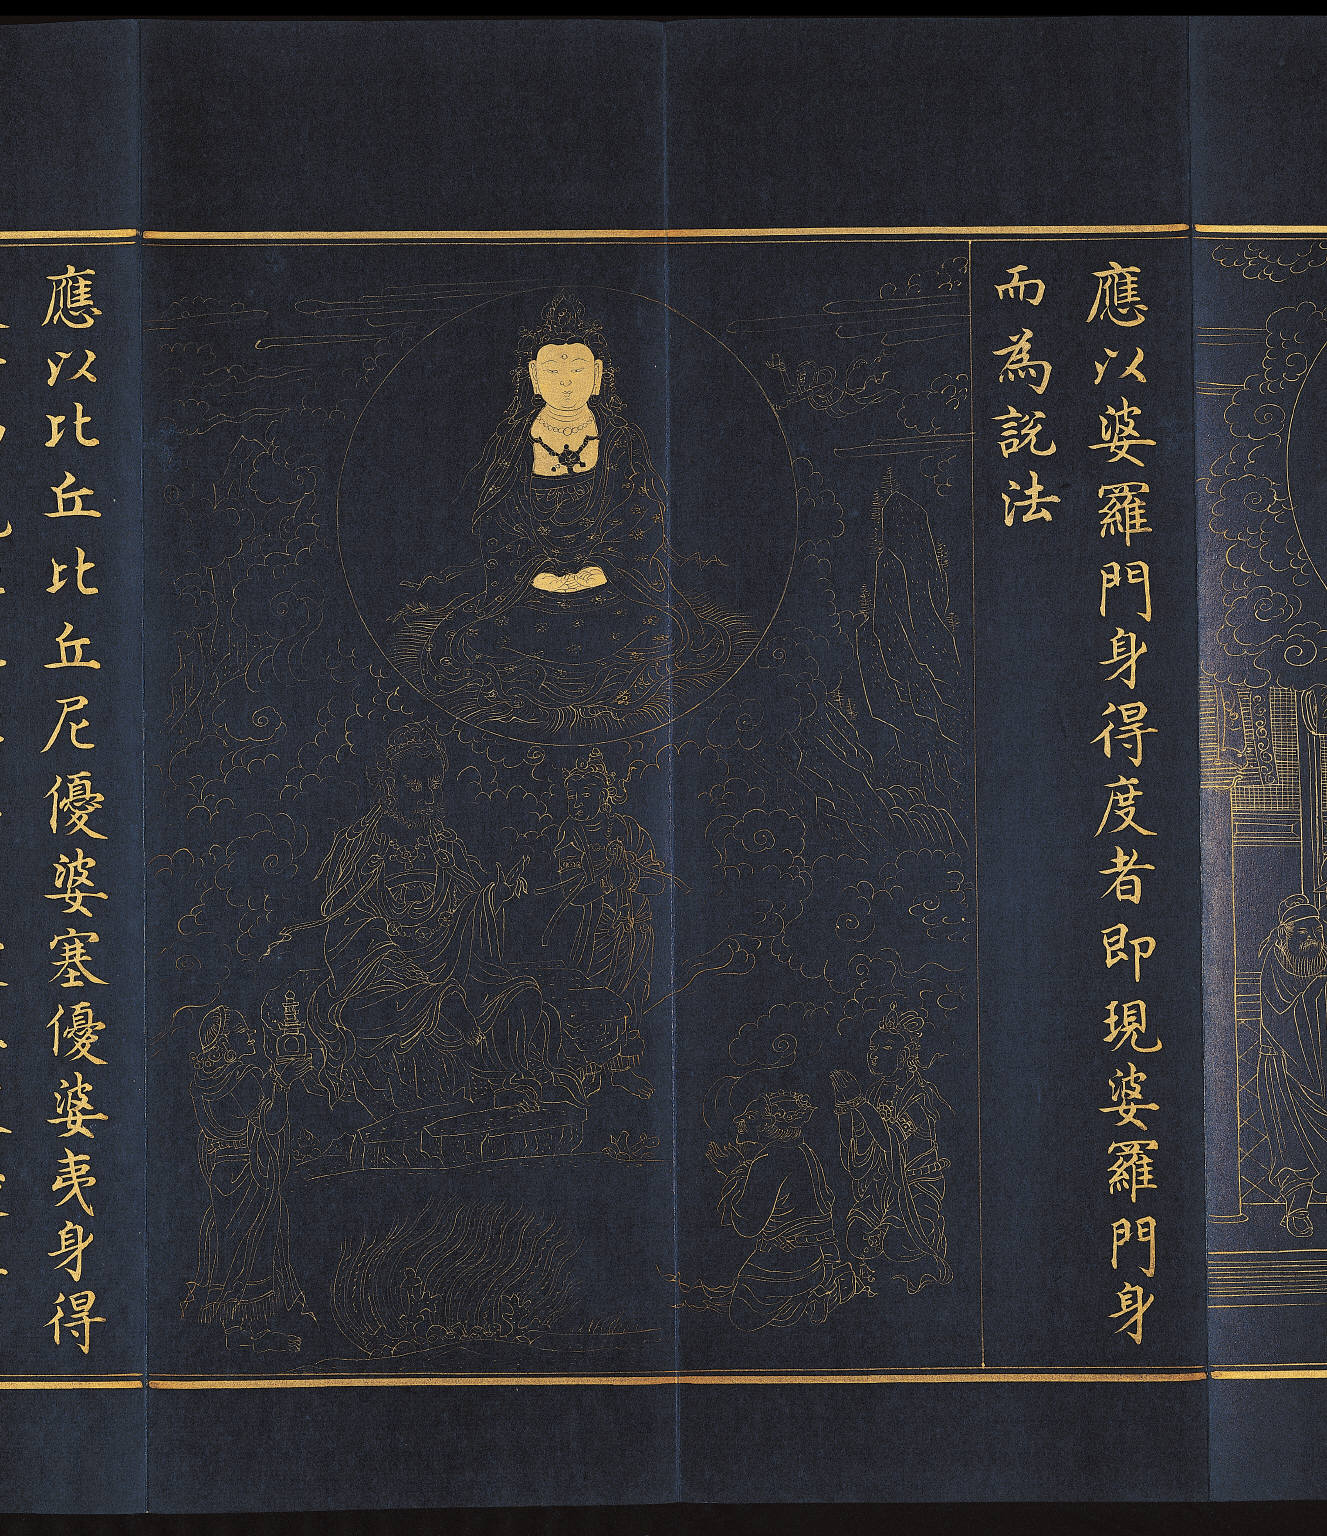 應以婆羅門身得度者即現婆羅門身
而為說法
應以比丘比丘尼優婆塞優婆夷身得